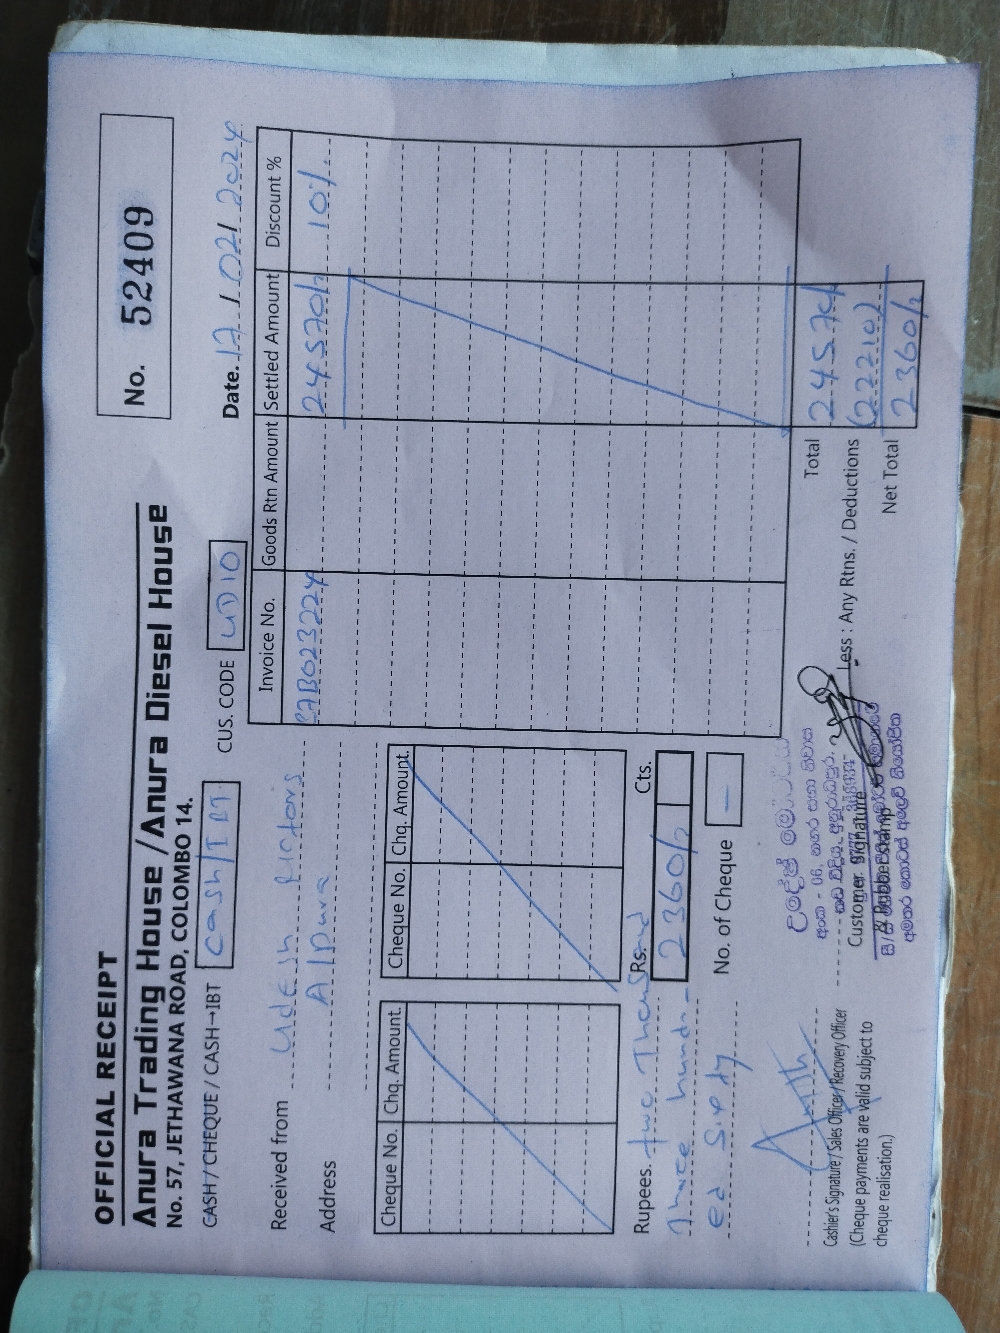 OFFICIAL RECEIPT
Anura Trading House / Anura Diesel House
No. 57, JETHAWANA ROAD, COLOMBO 14.
No. 52409
CASH / CHEQUE / CASH→IBT cash/IBT CUS. CODE UD10 Date. 17/02/2024
Received from Udesh
Address A/Pura
Invoice No. Goods Rtn Amount Settled Amount Discount %
CAB023224 24570/= 10%
Cheque No. Chq. Amount. Cheque No. Chq. Amount.
Rupees. two Thousand
Three hundr-
ed Sixty
Rs. Cts.
2360/=
No. of Cheque —
Total 24570/=
Less : Any Rtns. / Deductions (22210)
Net Total 2360/=
Cashier's Signature / Sales Officer / Recovery Officer
(Cheque payments are valid subject to
cheque realisation.)
Customer Signature
& Rubber stamp